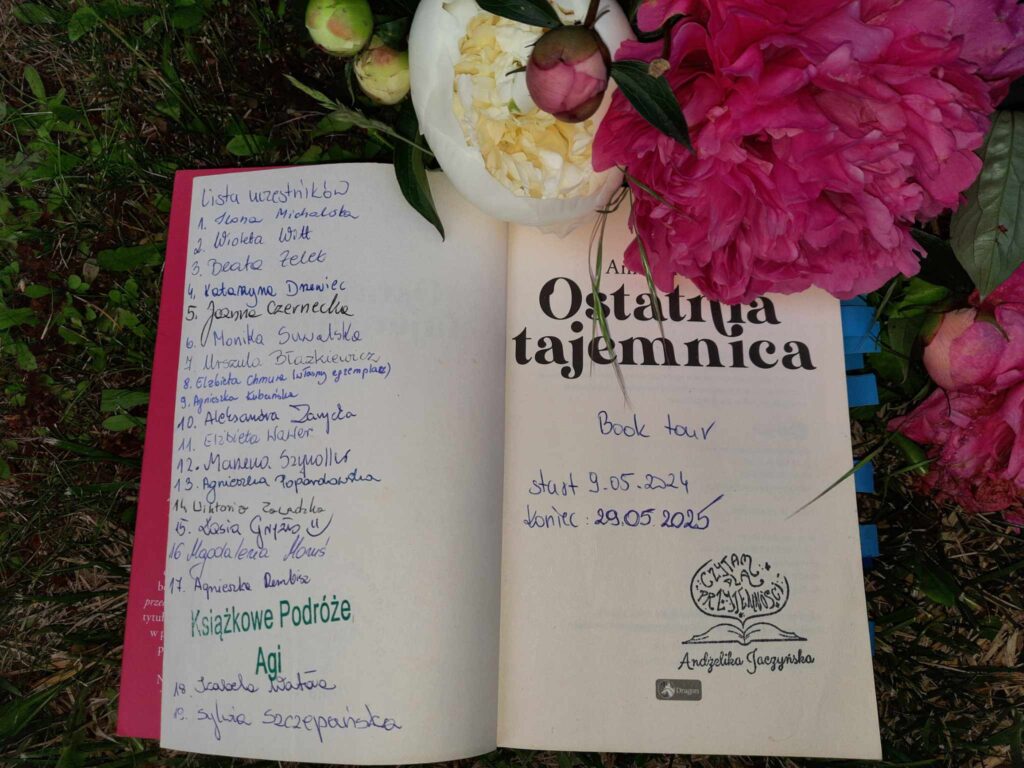 Lista uczestników
1. Ilona Michalska
2. Wioleta Witt
3. Beata Zelek
4. Katarzyna Drewiec
5. Joanna Czernecka
6. Monika Suwalska
7. Urszula Błażkiewicz
8. Elżbieta Chmura (własny egzemplarz)
9. Agnieszka Kabańska
10. Aleksandra Zawycka
11. Elżbieta Wawer
12. Marzena
13. Agnieszka Popardowska
14 Wiktoria Zawadzka
15. Kasia Gryżło
16 Magdalena
17. Agnieszka Rembisz
Książkowe Podróże
Agi
18. Izabela Watova
19. Sylwia Szczepańska
Ostatnia
tajemnica
Book tour
start 9.05.2024
koniec: 29.05.2025
CZYTAM
DLA
PRZYJEMNOŚCI
Andżelika Jaczyńska
Dragon